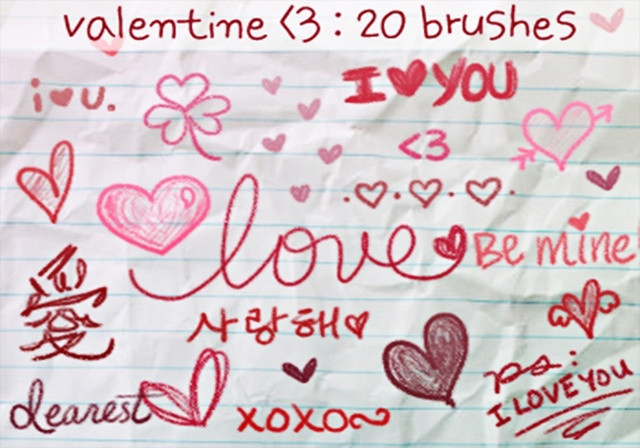 valentine <3 : 20 brushes
i u.
I YOU
<3
love
Be mine!
愛
사랑해
ps:
I LOVE YOU
dearest
xoxo~